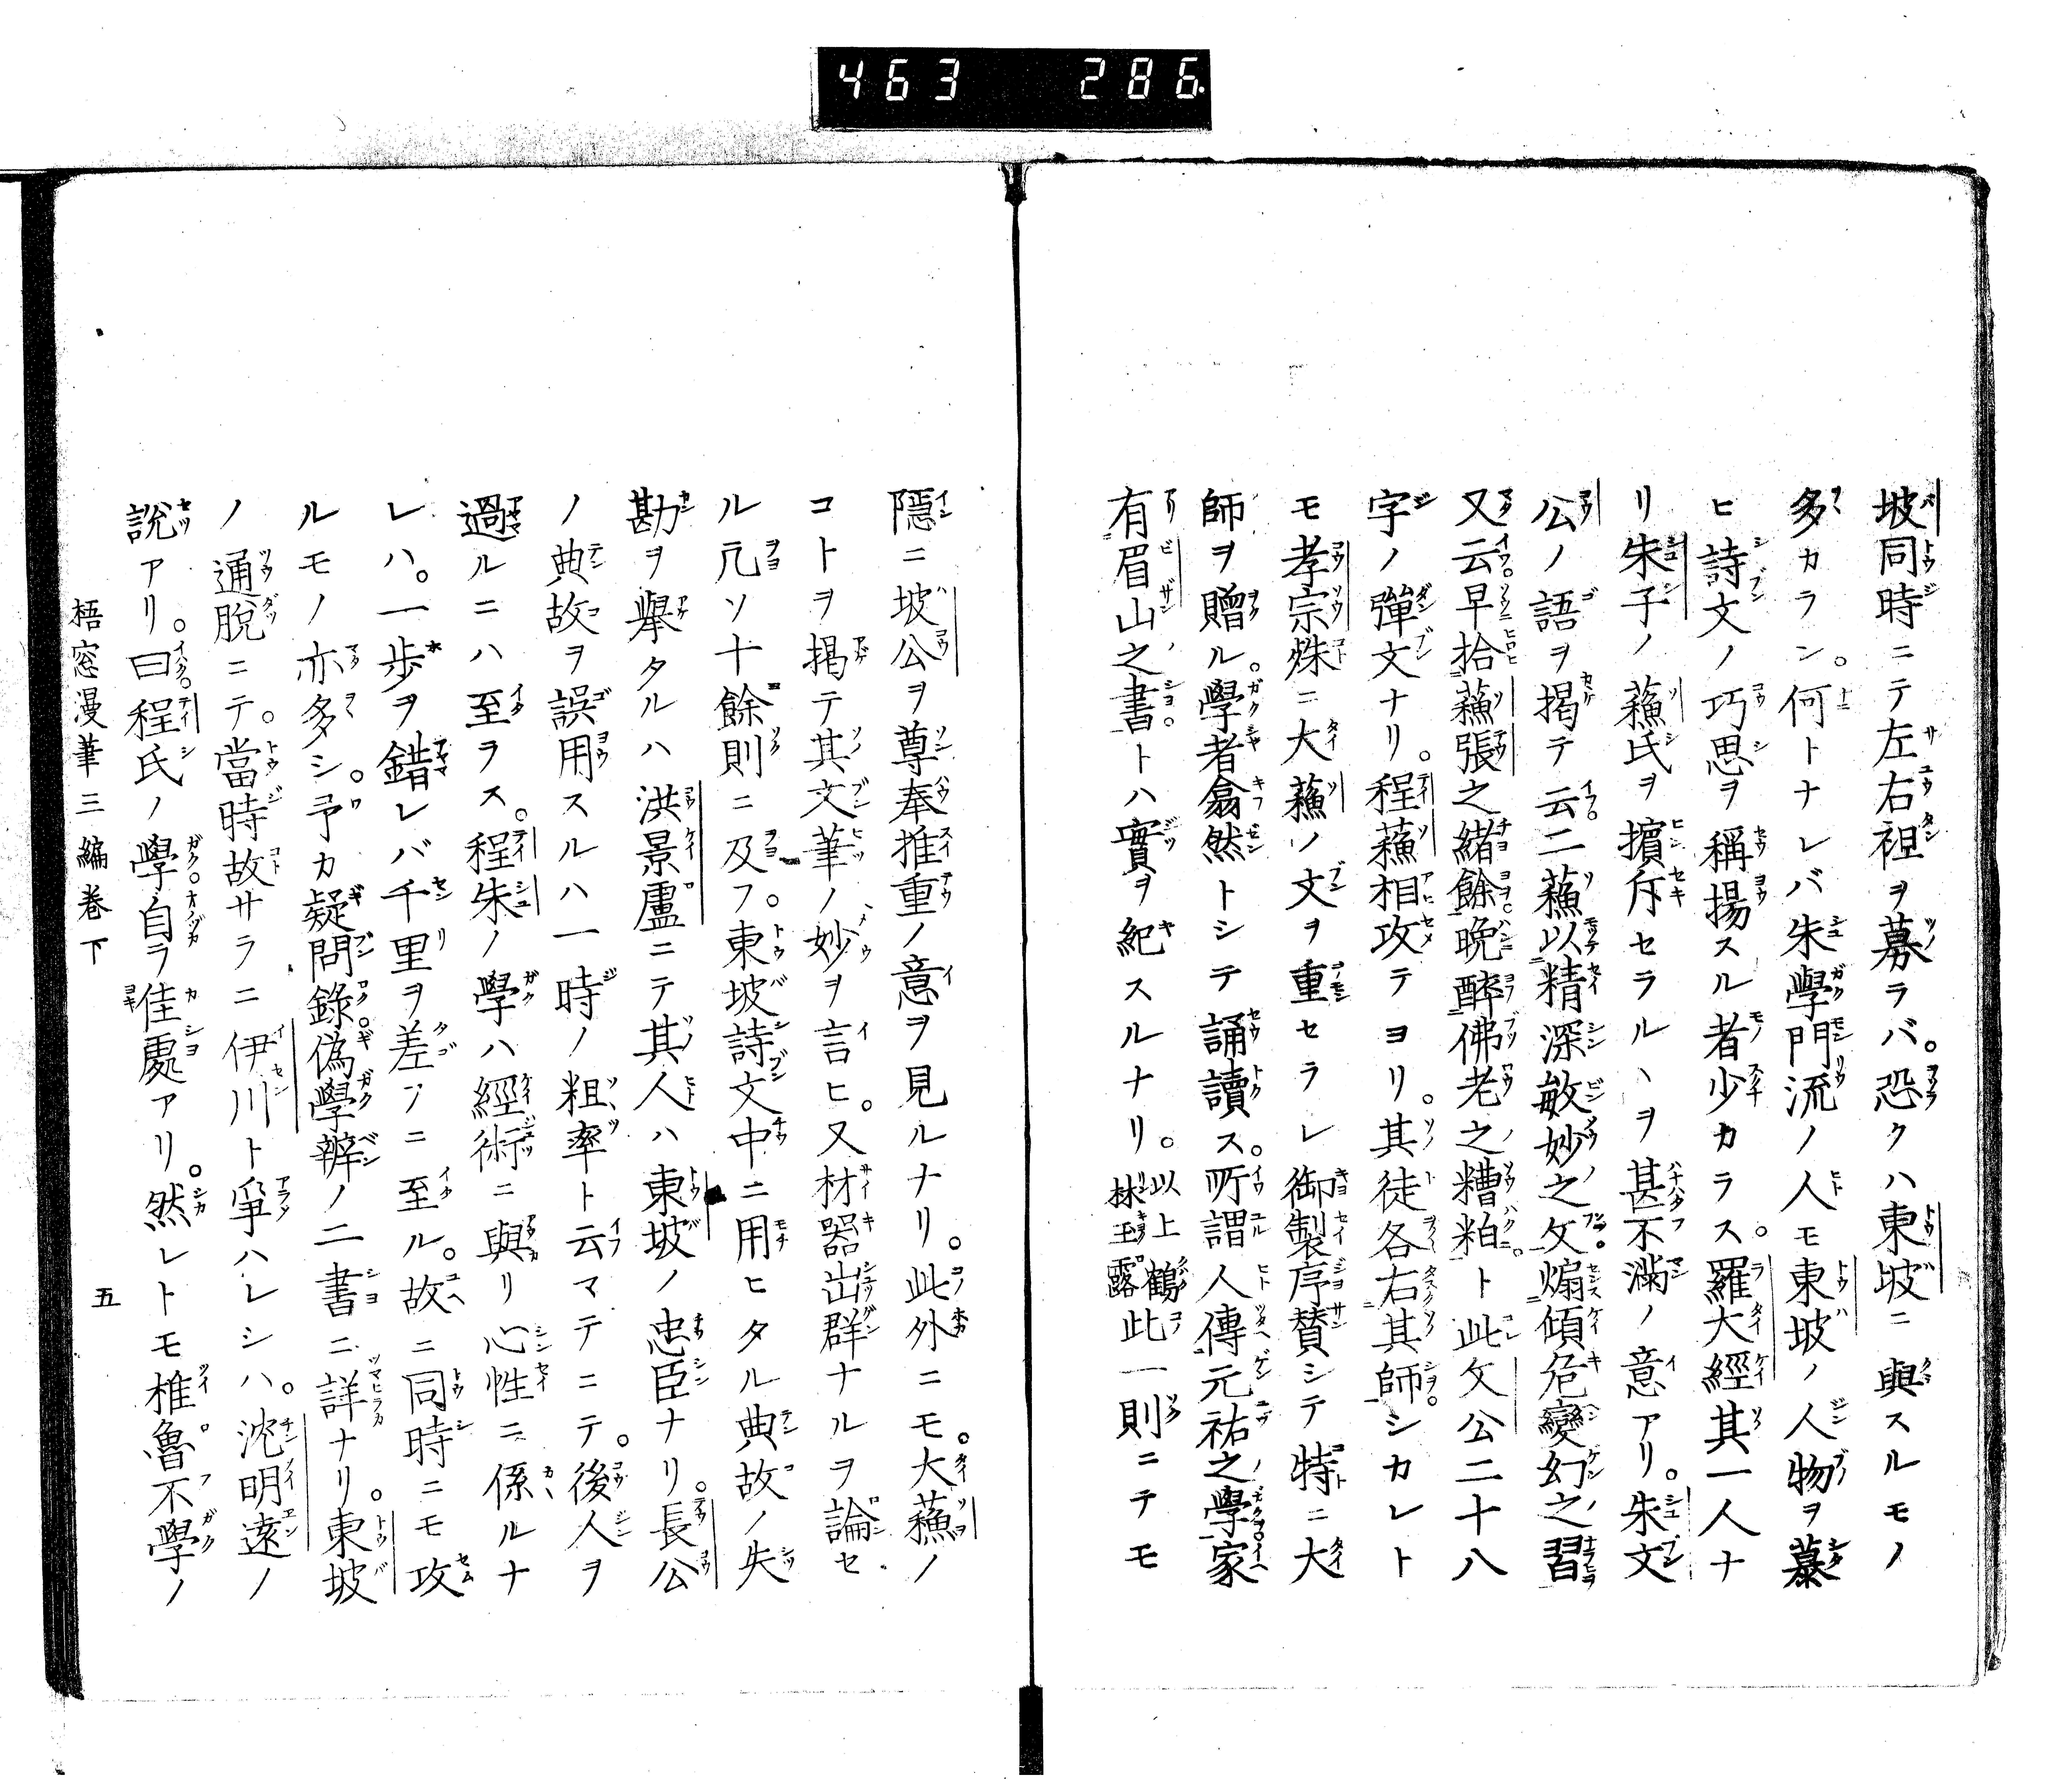 463 286
坡同時ニテ左右袒ヲ募ラバ。恐クハ東坡ニ與スルモノ
多カラン。何トナレバ朱學門流ノ人モ東坡ノ人物ヲ慕
ヒ詩文ノ巧思ヲ稱揚スル者少カラス。羅大經其一人ナ
リ朱子ノ蘓氏ヲ擯斥セラルヽヲ甚不滿ノ意アリ。朱文
公ノ語ヲ揭テ云。二蘓以精深敏妙之文。煽傾危變幻之習
又云。早拾蘓張之緒餘。晩醉佛老之糟粕。ト此文公二十八
字ノ彈文ナリ。程蘓相攻テヨリ。其徒各右其師。シカレト
モ孝宗殊ニ大蘓ノ文ヲ重セラレ御製序賛シテ特ニ大
師ヲ贈ル。學者翕然トシテ誦讀ス。所謂人傳元祐之學。家
有眉山之書。トハ實ヲ紀スルナリ。以上鶴林玉露此一則ニテモ
隱ニ坡公ヲ尊奉推重ノ意ヲ見ルナリ。此外ニモ。大蘓ノ
コトヲ揭テ其文筆ノ妙ヲ言ヒ。又材器出群ナルヲ論セ
ル凢ソ十餘則ニ及フ。東坡詩文中ニ用ヒタル典故ノ失
勘ヲ擧タルハ洪景盧ニテ其人ハ東坡ノ忠臣ナリ。長公
ノ典故ヲ誤用スルハ一時ノ粗率ト云マテニテ。後人ヲ
過ルニハ至ヲス。程朱ノ學ハ經術ニ與リ心性ニ係ルナ
レハ。一歩ヲ錯レバ千里ヲ差フニ至ル。故ニ同時ニモ攻
ルモノ亦多シ。予カ疑問錄。僞學辨ノ二書ニ詳ナリ。東坡
ノ通脫ニテ。當時故サラニ伊川ト爭ハレシハ。沈明遠ノ
說アリ。曰。程氏ノ學。自ラ佳處アリ。然レトモ椎魯不學ノ
梧窓漫筆三編卷下 五